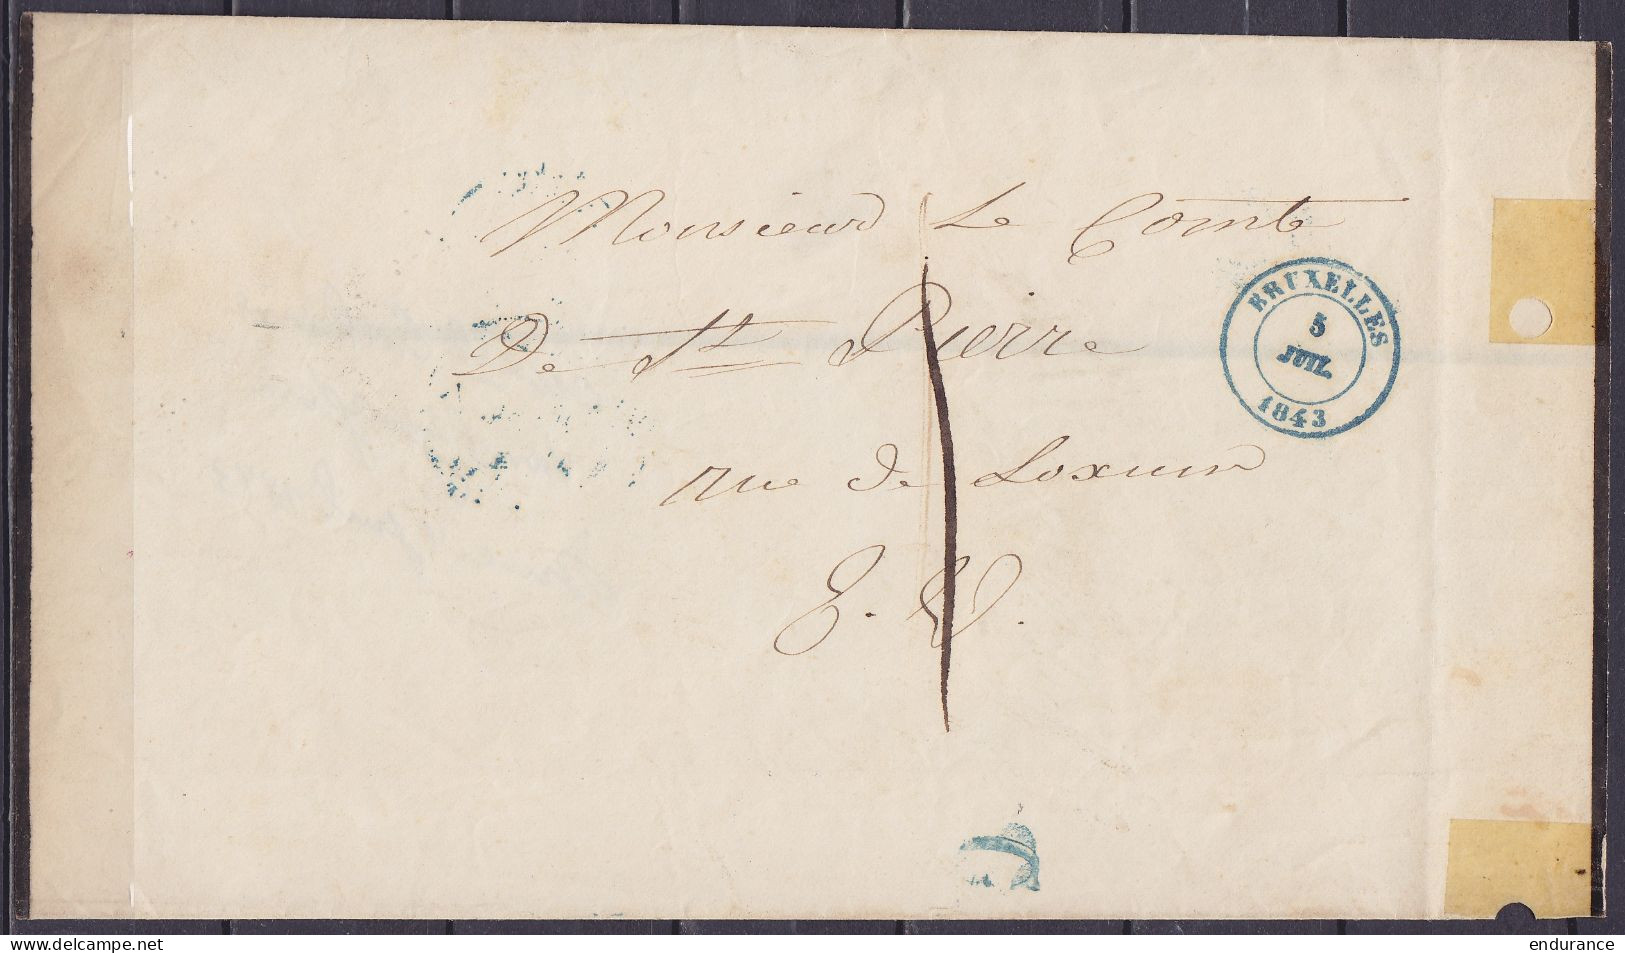 Monsieur Le Comte
De St Pierre
rue de Loxum
E. V.
BRUXELLES
5
JUIL.
1843
endurance